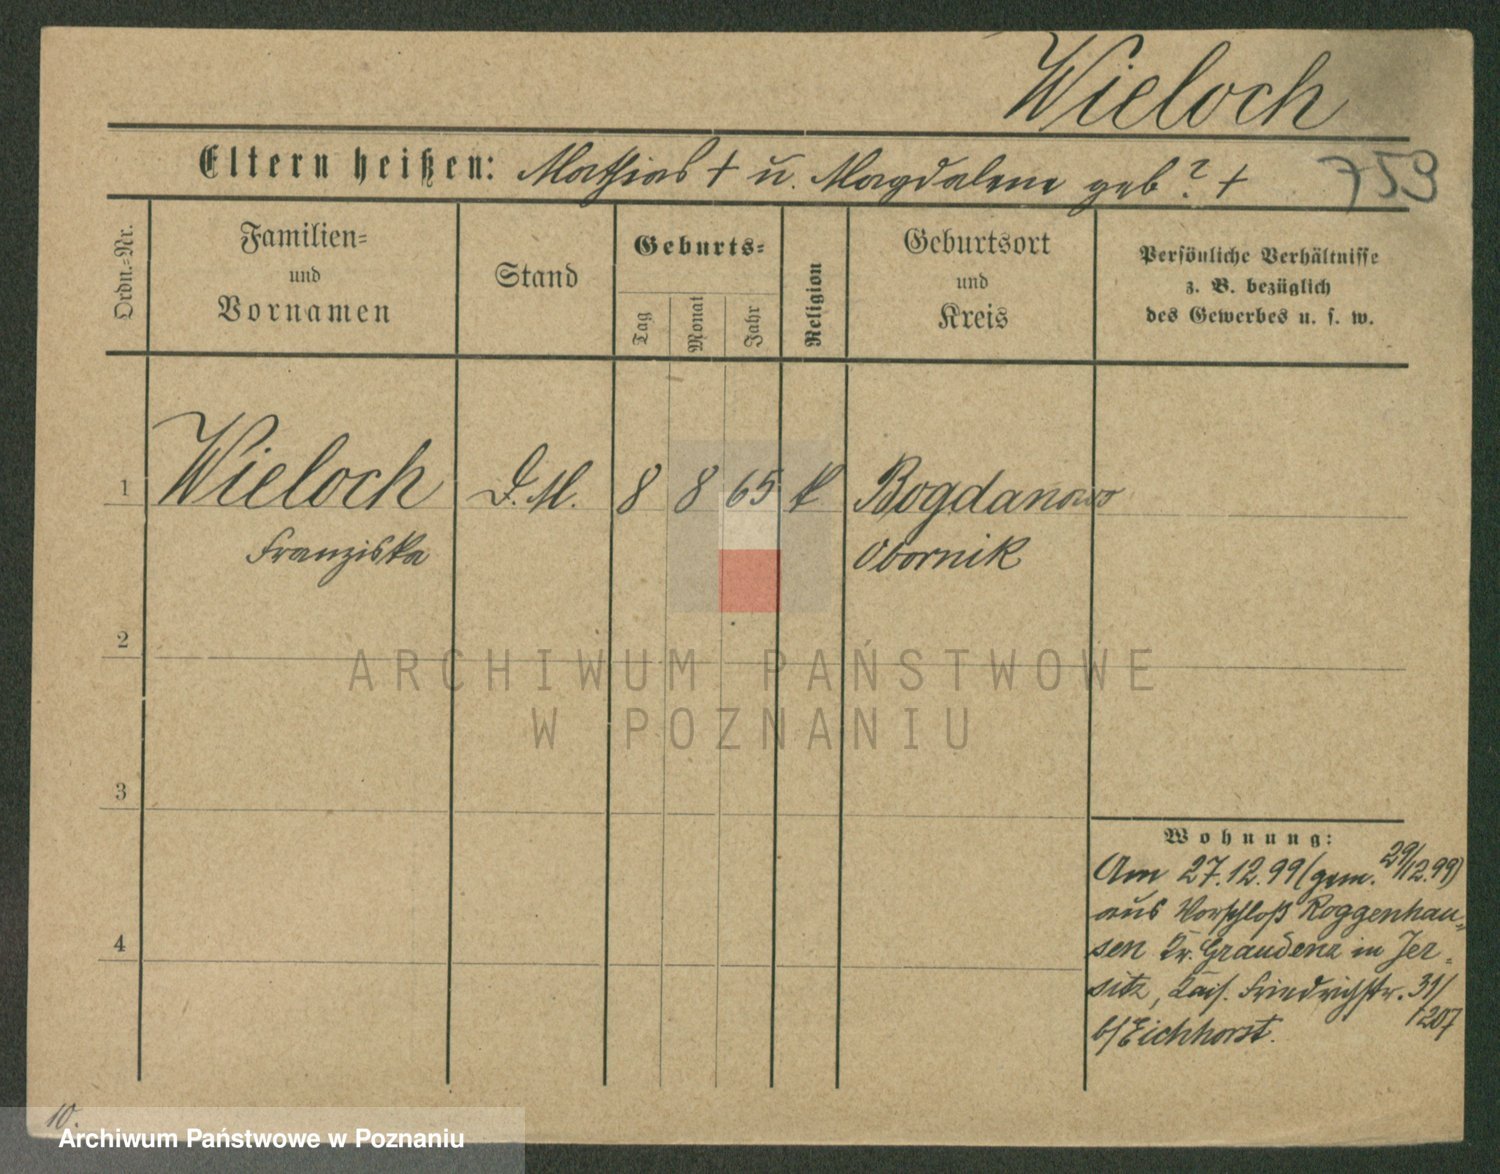 Wieloch
Eltern heißen: Mathias + u. Magdalene geb? +
759
Ordn.-Nr.
Familien-
und
Vornamen
Stand
Geburts-
Tag
Monat
Jahr
Religion
Geburtsort
und
Kreis
Persönliche Verhältnisse
z. B. bezüglich
des Gewerbes u. s. w.
1 Wieloch D. M. 8 8 65 k Bogdanowo
Franziska Obornik
2
ARCHIWUM PAŃSTWOWE
W POZNANIU
3
Wohnung:
Am 27.12.99 (gem. 29/12.99)
aus Vorschloß Roggenhau-
4
sen Kr. Graudenz in Jer-
sitz, Kais. Friedrichstr. 31/
b/Eichhorst. 1207
10.
Archiwum Państwowe w Poznaniu